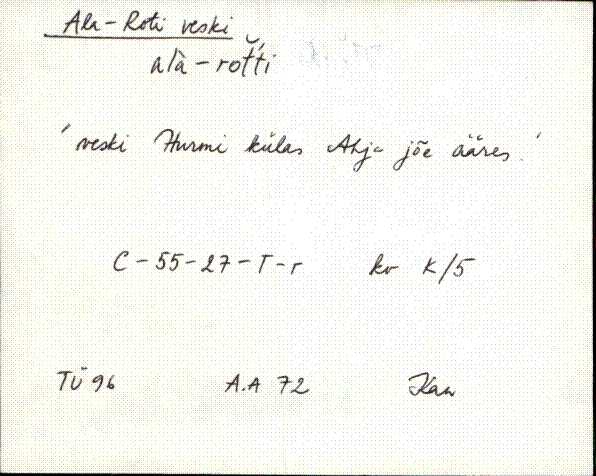 Ala-Roti veski
alà-rotˇt́i
'veski Hurmi külas Ahja jõe ääres.'
C-55-27-T-r kv K/5
TÜ 96 A.A 72 Kan